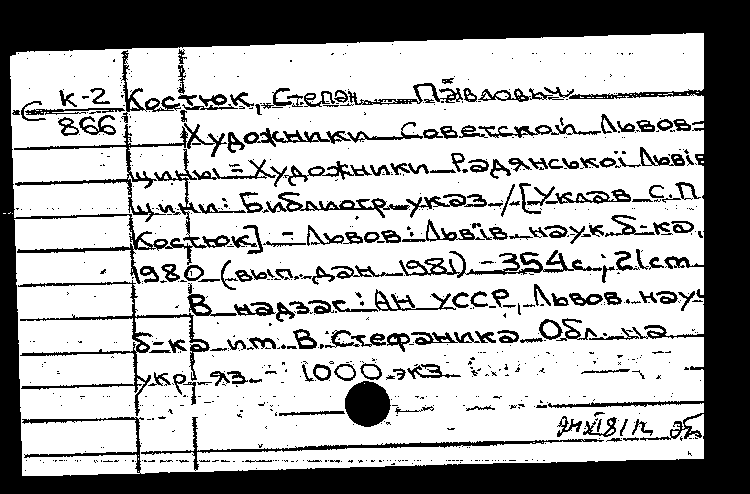 К-2 Костюк, Степан Павлович
С 866
Художники Советской Львов-
щины = Художники Радянської Львів
щини: Библиогр. указ / [Уклав С.П.
Костюк]. - Львов: Львів. наук. б-ка,
1980 (вып. дан. 1981). - 354 с.; 21 cm
В надзаг.: АН УССР, Львов. науч
б-ка им. В. Стефаника. Обл. на
укр. яз. - 1000 экз.